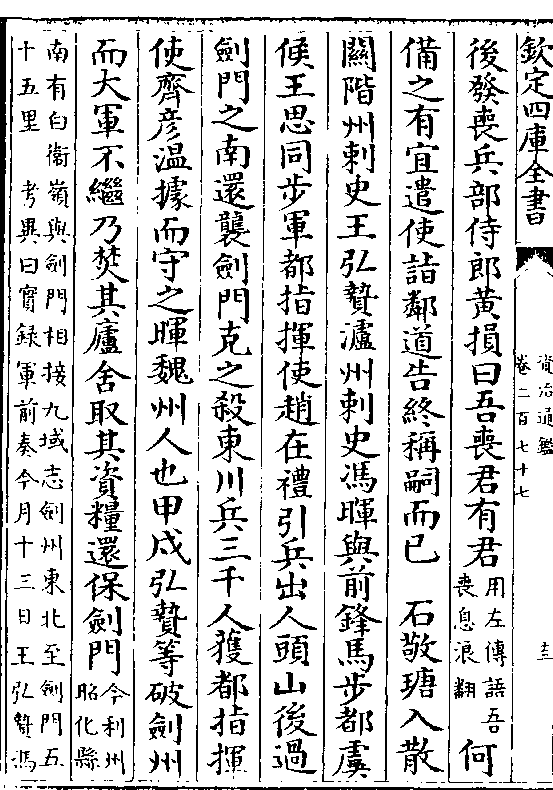 欽定四庫全書
資治通鑑
卷二百七十七
後發喪兵部侍郎黄損曰吾喪君有君
用左傳語吾
喪息浪翻
何
備之有宜遣使詣鄰道告終稱嗣而已 石敬瑭入散
關階州刺史王弘贄瀘州刺史馮暉與前鋒馬步都虞
候王思同步軍都指揮使趙在禮引兵出人頭山後過
劍門之南還襲劍門克之殺東川兵三千人獲都指揮
使齊彦温據而守之暉魏州人也甲戌弘贄等破劍州
而大軍不繼乃焚其廬舍取其資糧還保劍門
今利州
昭化縣
南有白衛嶺與劍門相接九域志劍州東北至劍門五
十五里 考異曰實録軍前奏今月十三日王弘贄馮